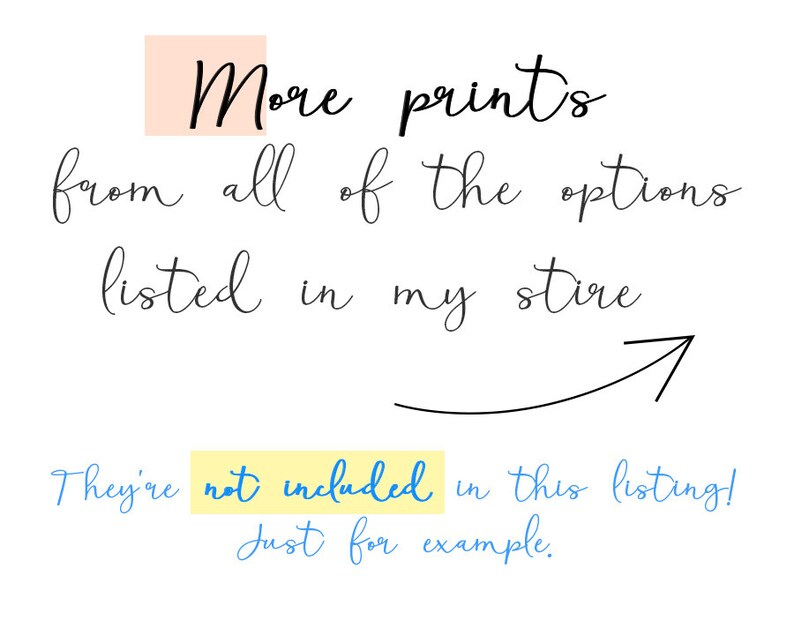 More prints
from all of the options
listed in my stire
They're not included in this listing!
Just for example.